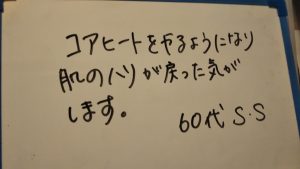 コアヒートをやるようになり
肌のハリが戻った気が
します。
60代 S.S